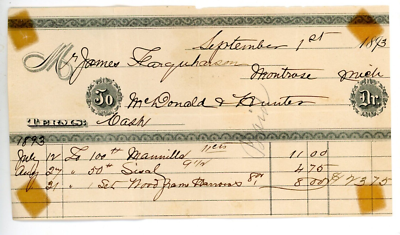 September 1st 1893
Mr James Farquharson
Montrose Mich
To McDonald & Hunter Dr.
TERMS, Cash
Paid
1893
July 12 To 100 lb Mannilla 11 cts 11 00
Aug 27 " 50 lb Sisal 9 1/2 4 75
" 21 " 1 Set Wood fram Harrows 8 00 8 00 $23.75